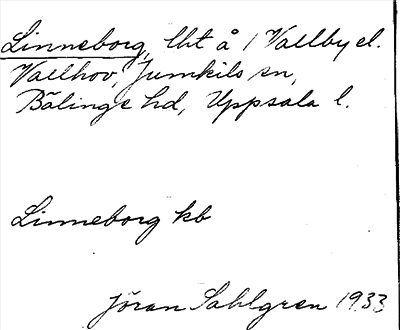 Linneborg, lht å 1 Vallby el.
Vallhov, Jumkils sn,
Bälinge hd, Uppsala l.
Linneborg kb
Jöran Sahlgren 1933